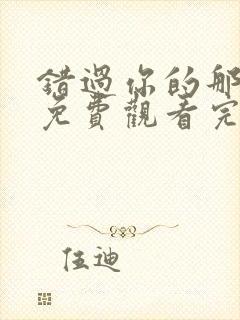 錯過你的那
免費觀看完
伍迪